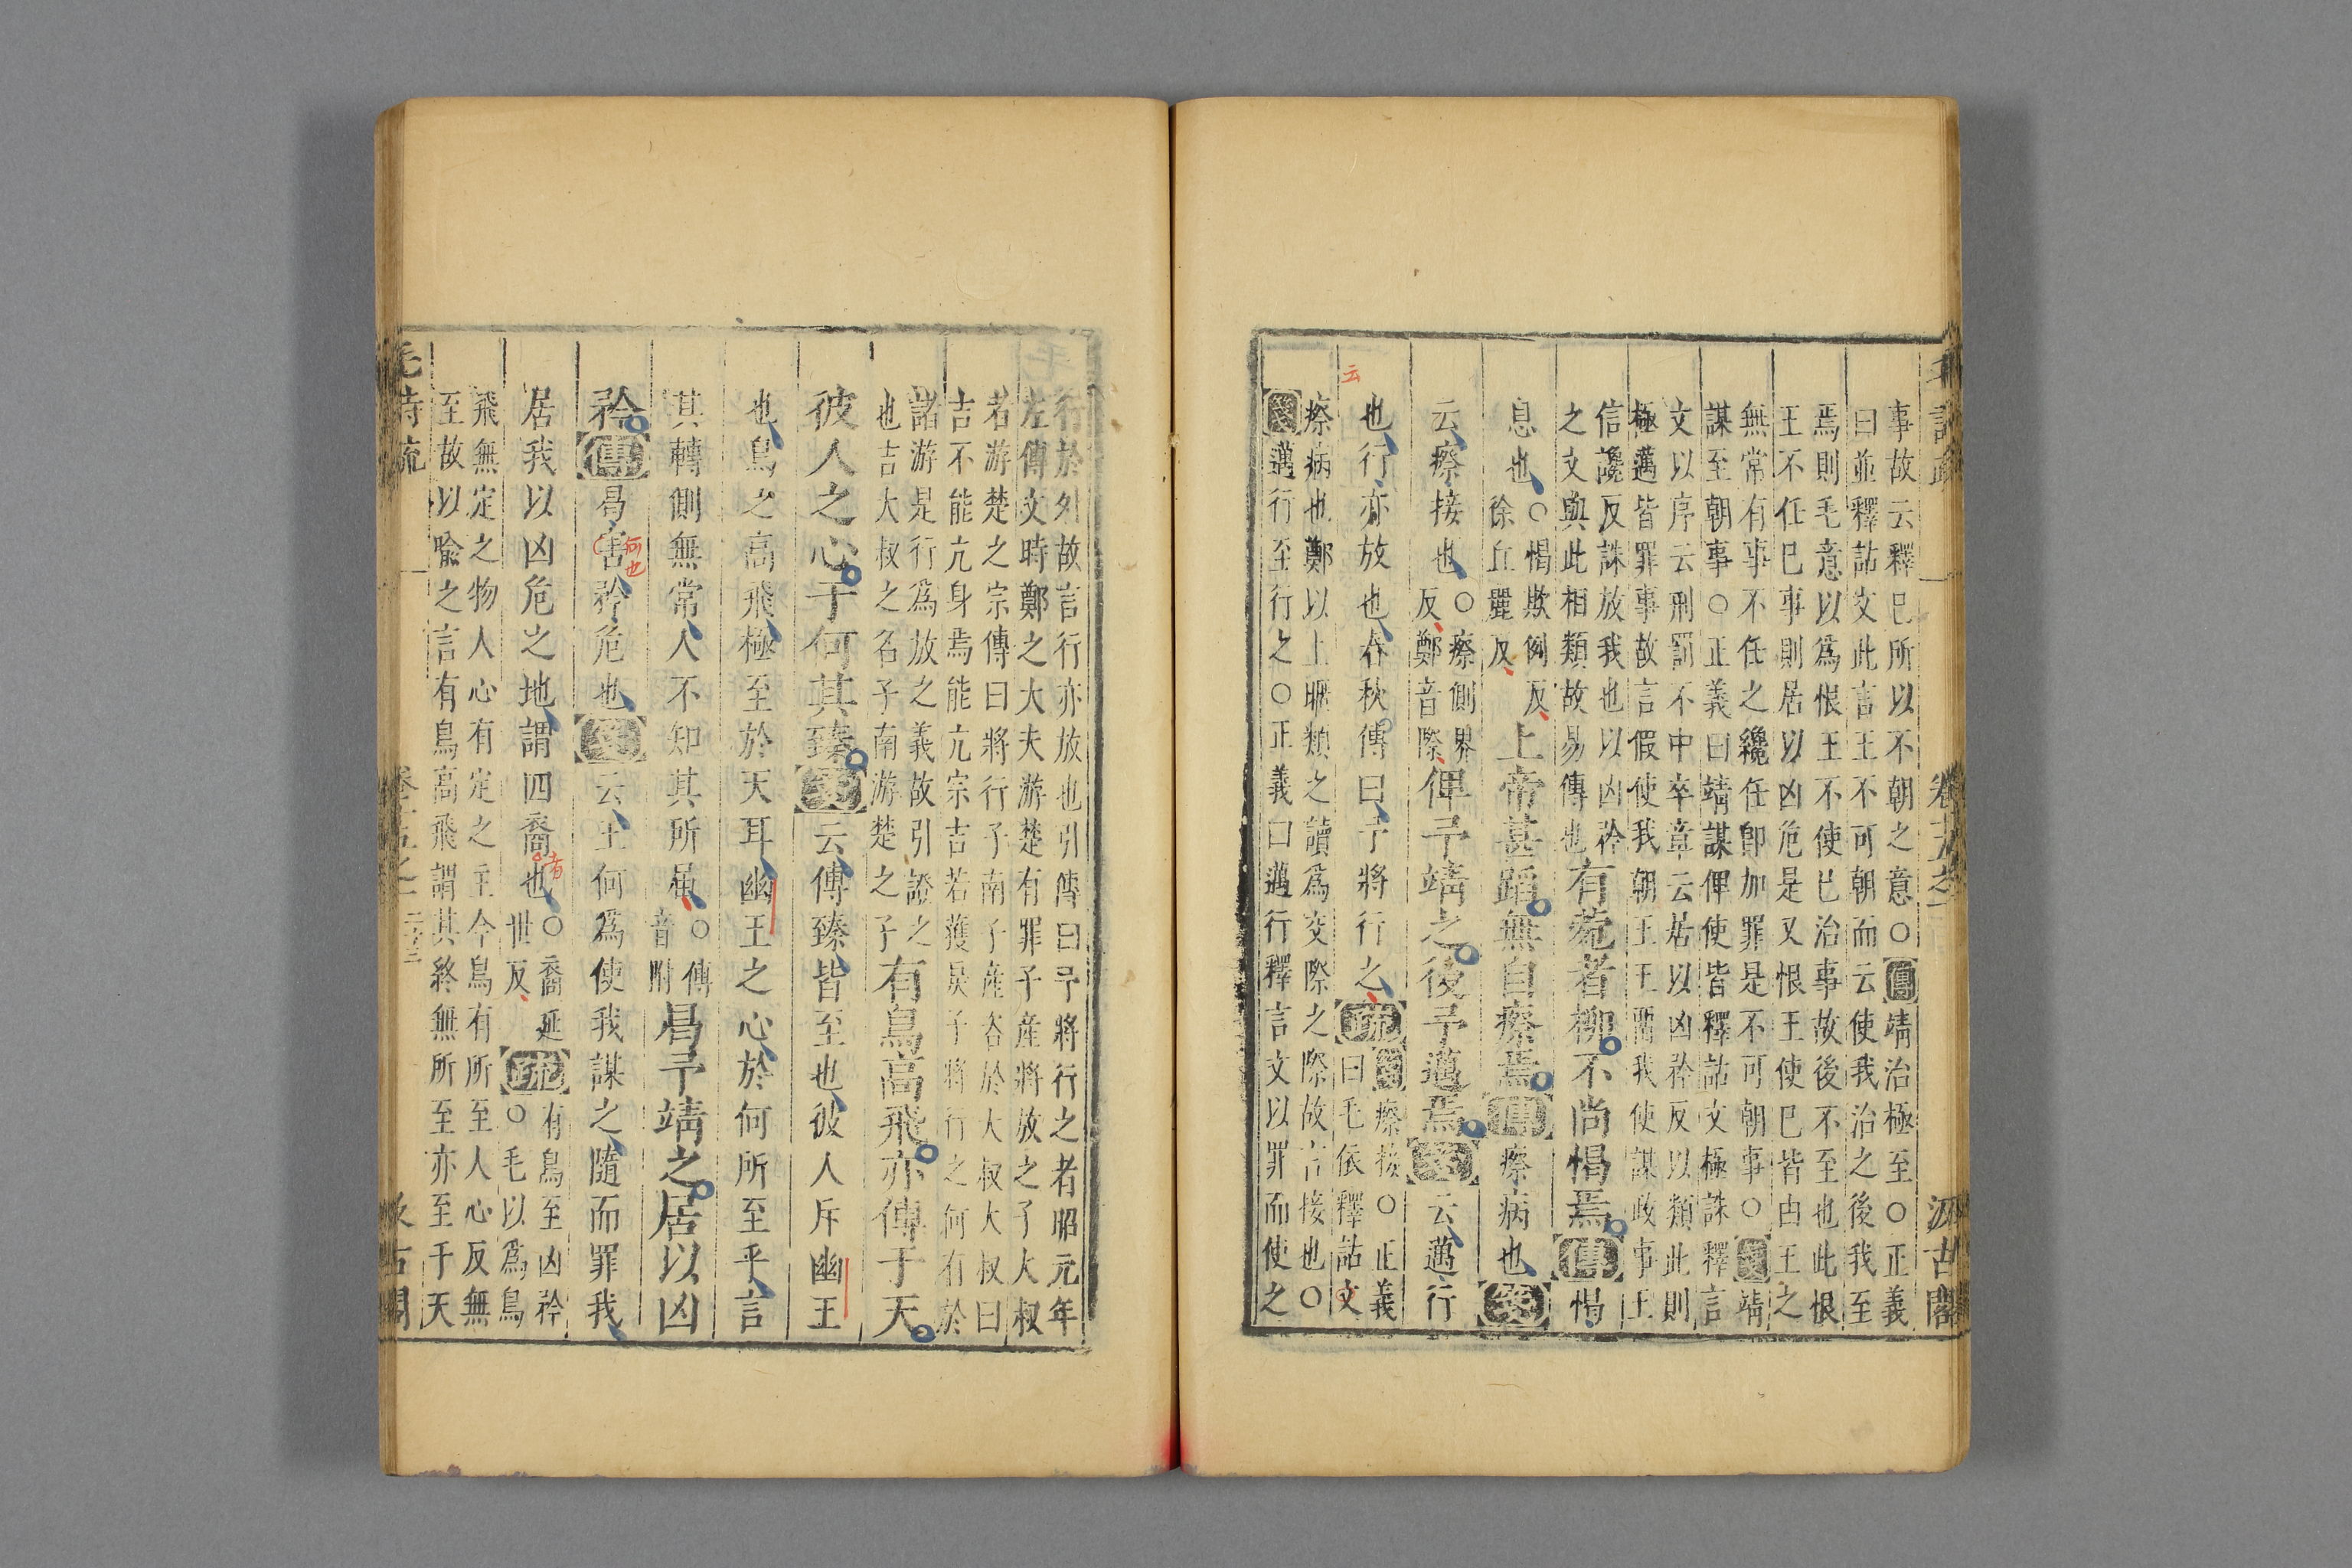 毛詩疏 卷十五之一 汲古閣
事故云釋巳所以不朝之意○傳靖治極至○正義
曰並釋詁文此言王不可朝而云使我治之後我至
焉則毛意以爲恨王不使巳治事故後不至也此恨
王不任巳事則居以凶危是又恨王使巳皆由王之
無常有事不任之纔任卽加罪是不可朝事○箋靖
謀至朝事○正義曰靖謀俾使皆釋詁文極誅釋言
文以序云刑罰不中卒章云居以凶矜反以類此則
極邁皆罪事故言假使我朝王王畱我使謀政事王
信讒反誅放我也以凶矜
之文與此相類故易傳也有菀者柳不尚愒焉傳愒
息也○愒欺例反徐丘麗反上帝甚蹈無自瘵焉傳瘵病也箋
云瘵接也○瘵側界反鄭音際俾予靖之後予邁焉箋云邁行
云
也行亦放也春秋傳曰予將行之疏箋瘵接○正義曰毛依釋詁文
瘵病也鄭以上暱類之讀爲交際之際故言接也○
箋邁行至行之○正義曰邁行釋言文以罪而使之
行於外故言行亦放也引傳曰予將行之者昭元年
左傳文時鄭之大夫游楚有罪子產將放之子大叔
若游楚之宗傳曰將行子南子產咨於大叔大叔曰
吉不能亢身焉能亢宗吉若獲戾子將行之何有於
諸游是行爲放之義故引證之
也吉大叔之名子南游楚之子有鳥高飛亦傅于天
彼人之心于何其臻箋云傅臻皆至也彼人斥幽王
也鳥之高飛極至於天耳幽王之心於何所至乎言
其轉側無常人不知其所屆○傅音附曷予靖之居以凶
矜傳曷害矜危也箋云王何爲使我謀之隨而罪我
何也
居我以凶危之地謂四裔也○裔延世反疏有鳥至凶矜○毛以爲鳥
者
飛無定之物人心有定之主今鳥有所至人心反無
至故以喻之言有鳥高飛謂其終無所至亦至于天
毛詩疏 卷十五之一 二十三 汲古閣